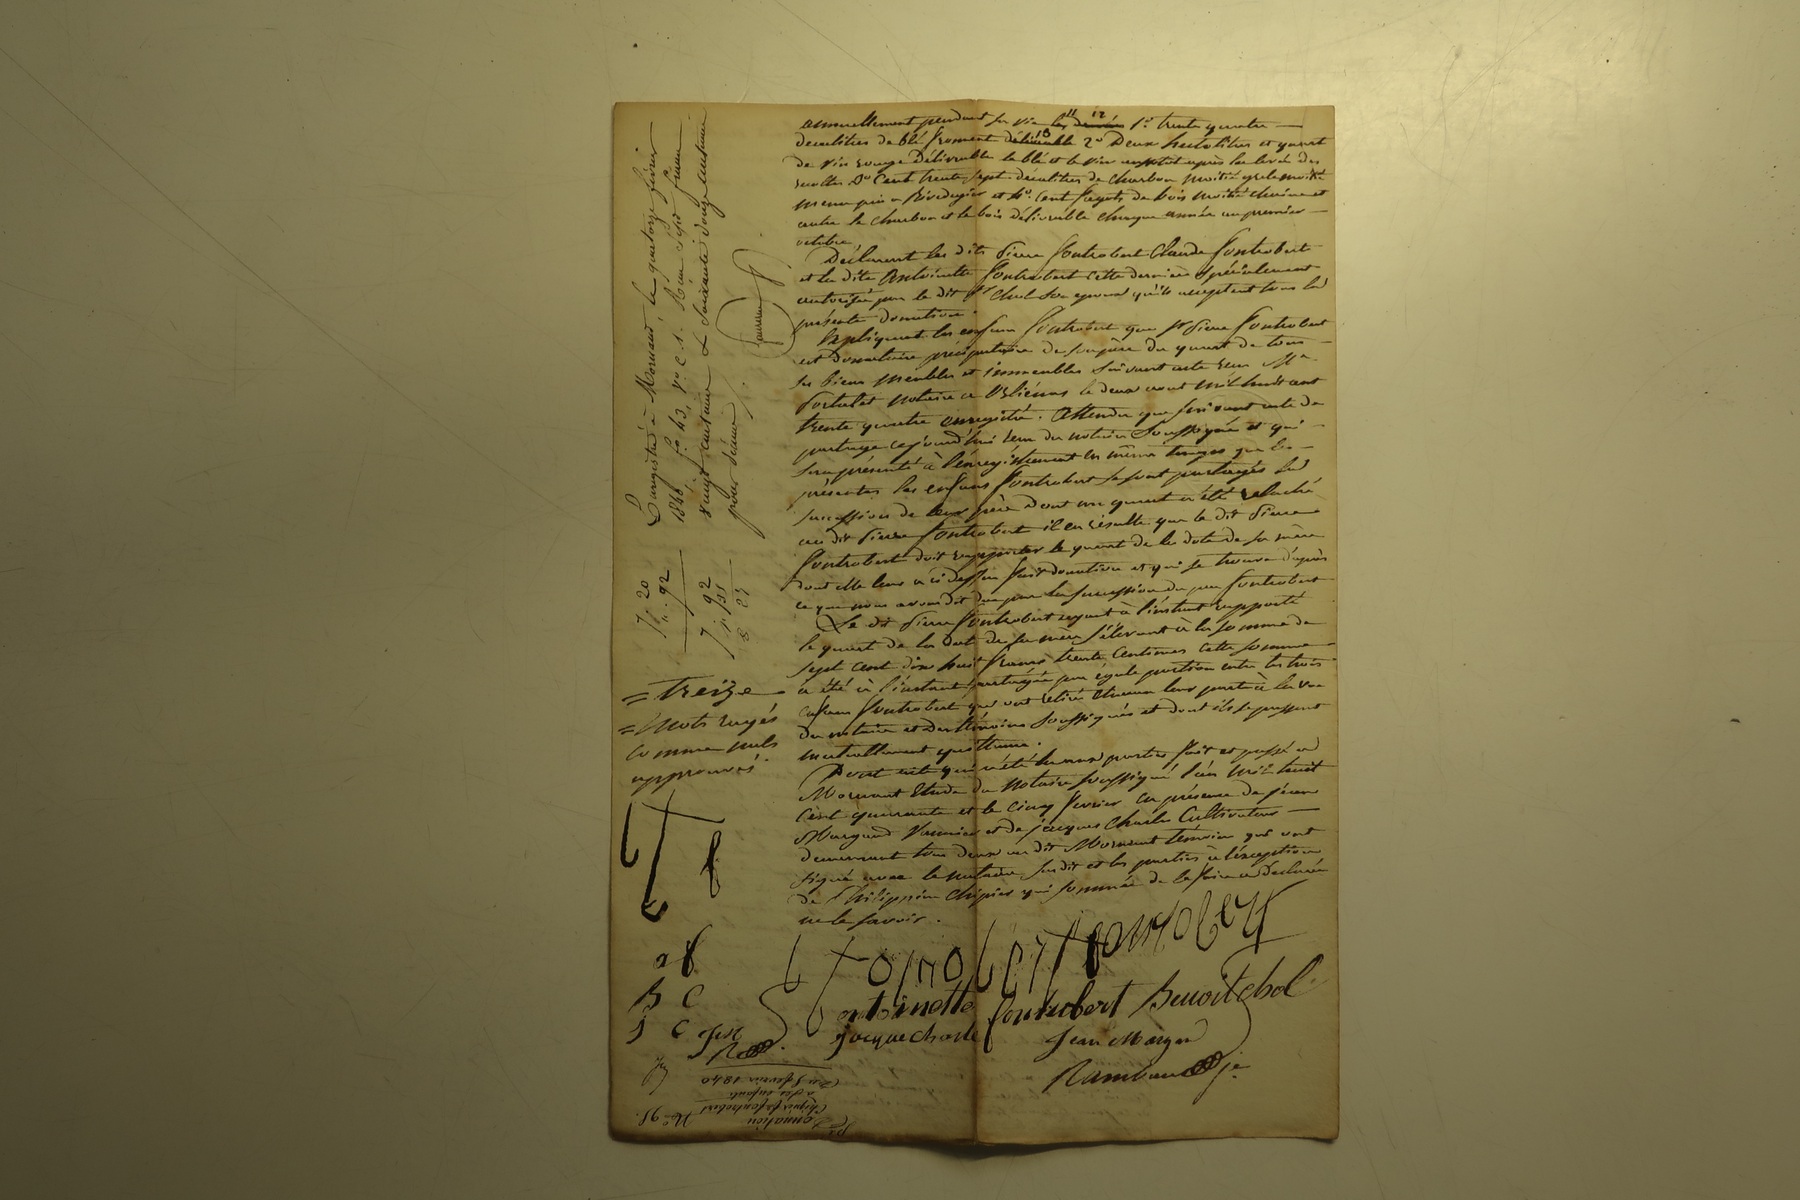 annuellement pendant sa vie les 11 12 1° trente quatre
décalitres de blé froment délivrable 13 2° Deux hectolitres et quart
de vin rouge Délivrable le blé et le vin aussitot après la levée des
récoltes 3° Cent trente sept décalitres de charbon moitié grele moitié
menu pris a Rivedegier et 4° Cent fagots de bois moitié chêne et
autre le charbon et le bois délivrable chaque année au premier
octobre.
Déclarent les dits Pierre fontrobert Claude fontrobert
et la dite Antoinette fontrobert cette dernière spécialement
autorisée par le dit Sr Chol son epoux qu'ils acceptent tous la
présente donation.
Expliquent les enfans fontrobert que Sr Pierre fontrobert
est donataire préciputaire de son père du quart de tous
ses biens meubles et immeubles suivant acte reçu Me
notaire a Orliénas le deux aout mil huit cent
trente quatre enregistré. Attendu que suivant acte de
partage cejourd'hui reçu du notaire soussigné et qui
sera présenté à l'enregistrement en même temps que les
présentes les enfans fontrobert se sont partagés la
succession de leur père dont un quart a été relaché
au dit Pierre fontrobert il en résulte que le dit Pierre
fontrobert doit rapporter le quart de la dote de sa mère
dont elle leur a ci dessus fait donation et qui se trouve d'après
ce que nous avons dit due par la succession du père fontrobert
Le dit Pierre fontrobert ayant à l'instant rapporté
le quart de la dot de sa mère s'élevant à la somme de
sept cent dix huit francs trente centimes cette somme
a été à l'instant partagée par égale portion entre les trois
enfans fontrobert qui ont retiré chacun leur part à la vue
du notaire et des témoins soussignés et dont ils se passent
mutuellement quittance.
Dont acte qui a été lu aux parties fait et passé au
Mornant Etude du notaire soussigné l'an mil huit
cent quarante et le cinq février en présence de jean
Margand Vannier et de jacques Charle Cultivateur
demeurant tous deux au dit Mornant témoins qui ont
signé avec le notaire susdit et les parties à l'exception
de Philippine Chipier qui sommée de le faire a déclaré
ne le savoir.
fontrobert
antoinette fontrobert Benoit chol
jacque charle
Jean Margan
Rambaud je
Enregistré à Mornant, le quatorze février
1840 fo 43, Vo C 1. Reçu sept francs
vingt centimes & soixante douze centimes
pour décime.
7, 20
", 92
7, 92
= treize
= mots rayés
comme nuls
approuvés.
B C
J C
No 98.
Donation
Chipier fe fontrobert
a ses enfants
Du 5 février 1840